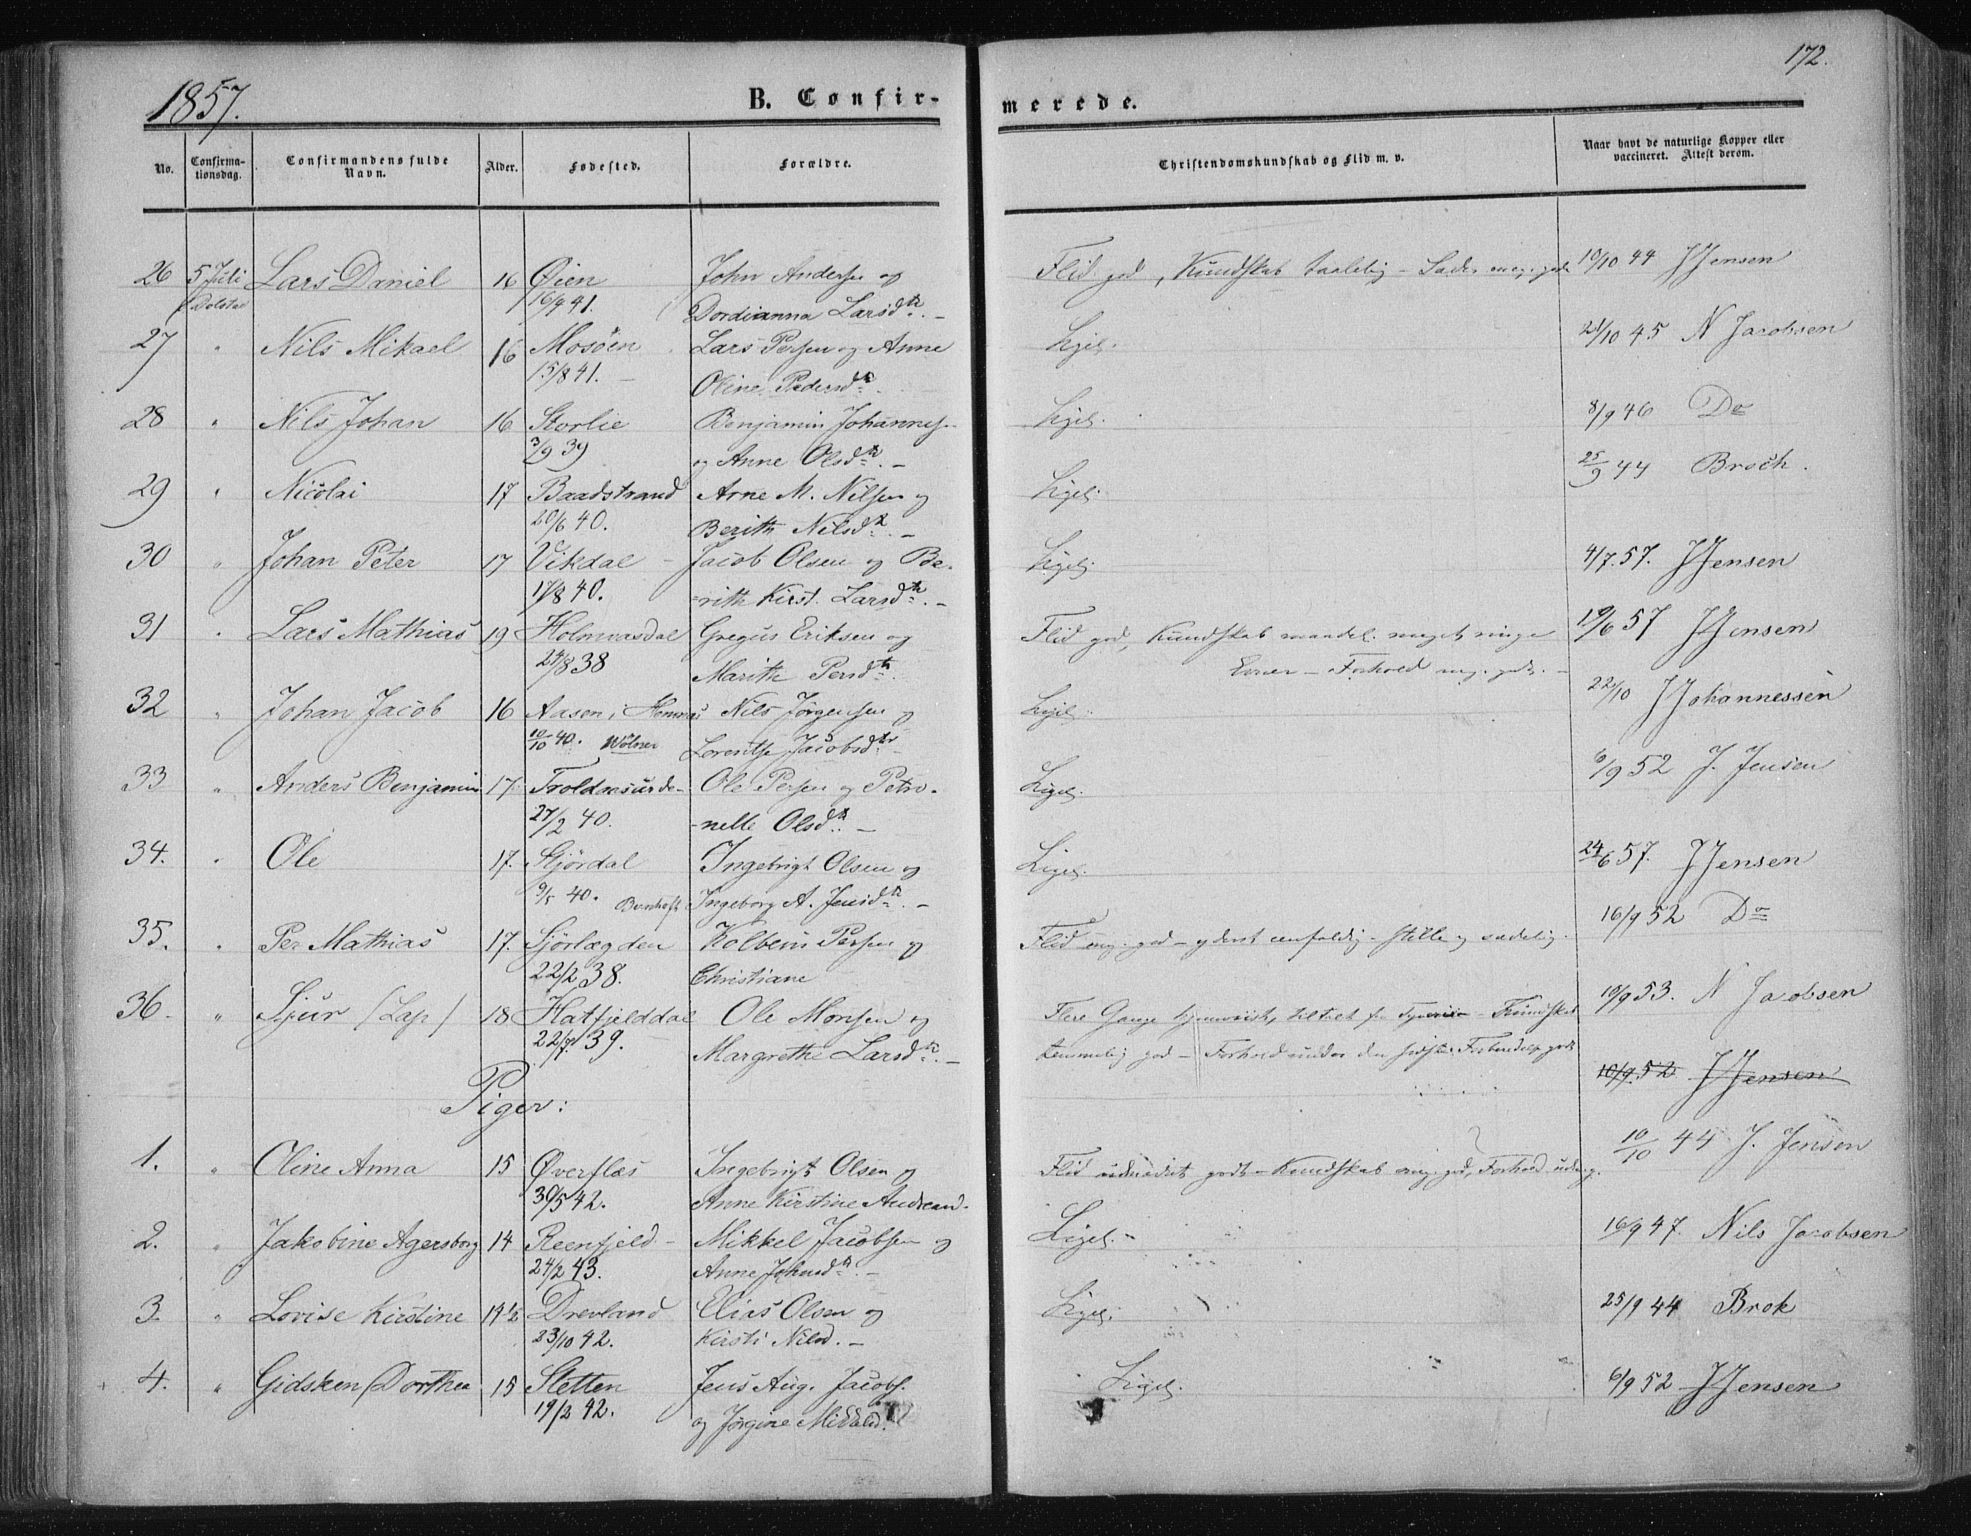 172.
1857. B. Confir- merede.
No. Confirma- tionsdag. Confirmandens fulde Navn. Alder. Fødested. Forældre. Christendomskundskab og Flid m. v. Naar havt de naturlige Kopper eller vaccineret. Attest derom.
26 5 Juli Lars Daniel 16 Øien John Andersen og Flid god, Kundskab taalelig - 10/10 44 J Jensen
Dolstad 16/9 41. Dordianna Larsdtr. -
27 " Nils Mikael 16 Mosøen Lars Persen og Anne Ligel. 21/10 45 N Jacobsen
15/8 41. - Oline Pedersdr.
28 " Nils Johan 16 Storlie Benjamin Johannes. Ligel. 8/9 46 Do
3/9 39 og Anne Olsdtr. -
29 " Nicolai 17 Baadstrand Arne M. Nilsen og Ligel. 25/9 44 Broch.
20/6 40. Berith Nilsdtr. -
30 " Johan Peter 17 Vikdal - Jacob Olsen og Be- Ligel. 4/7. 57. J Jensen
17/8 40. -rith Kirst. Larsdtr. -
31 " Lars Mathias 19 Holmvasdal Gregus Eriksen og Flid god, Kundskab maadel. meget ringe 19/6 57 J Jensen
24/8 38 Marith Persdtr. Evner - Forhold meg. godt. -
32 " Johan Jacob 16 Aasen i Hemnæs Nils Jørgensen og Ligel. 22/10 J Johannessen
10/10 40. Lorentse Jacobsdtr -
33 " Anders Benjamin 17. Ole Persen og Petro- Ligel. 6/9 52 J. Jensen
27/2 40. -nelle Olsdtr. -
34. " Ole 17. Stjørdal Ingebrigt Olsen og Ligel. 24/6 57. J Jensen
40. Ingeborg A. Jensdtr. -
35. " Per Mathias 17. Sjörlægden Kolbein Persen og Flid meg. god - yderst eenfoldig - stille og sædelig. 16/9 52 Do
22/2 38. Christiane
36. " Sjur (Lap) 18 Hatfjelddal Ole Monsen og Flere Gange 10/9 53. N Jacobsen
39. Margrethe Larsdtr. - temmelig god - Forhold under den sidste Forberedelse godt
10/9. 52 J Jensen
Piger:
1. " Oline Anna 15 Øverflæs Ingebrigt Olsen og Flid godt - Kundskab meg. god, Forhold 10/10 44 J. Jensen
30/5 42. Anne Kirstine Andreasd.
2. " Jakobine Agersborg 14 Reenfjeld - Mikkel Jacobsen og Ligel. - 16/9 47. Nils Jacobsen
24/2 43. Anne Johnsdtr. -
3. " Lovise Kirstine 14½ Drevland Elias Olsen og Ligel. 25/9 44 Brok
23/10 42. Kirsti Nilsd. -
4. " Gidsken Dorthea 15 Sletten Jens Aug. Jacobs. Ligel. 6/9 52 J Jensen
19/2 42. og Jørgine Mikkelsd.